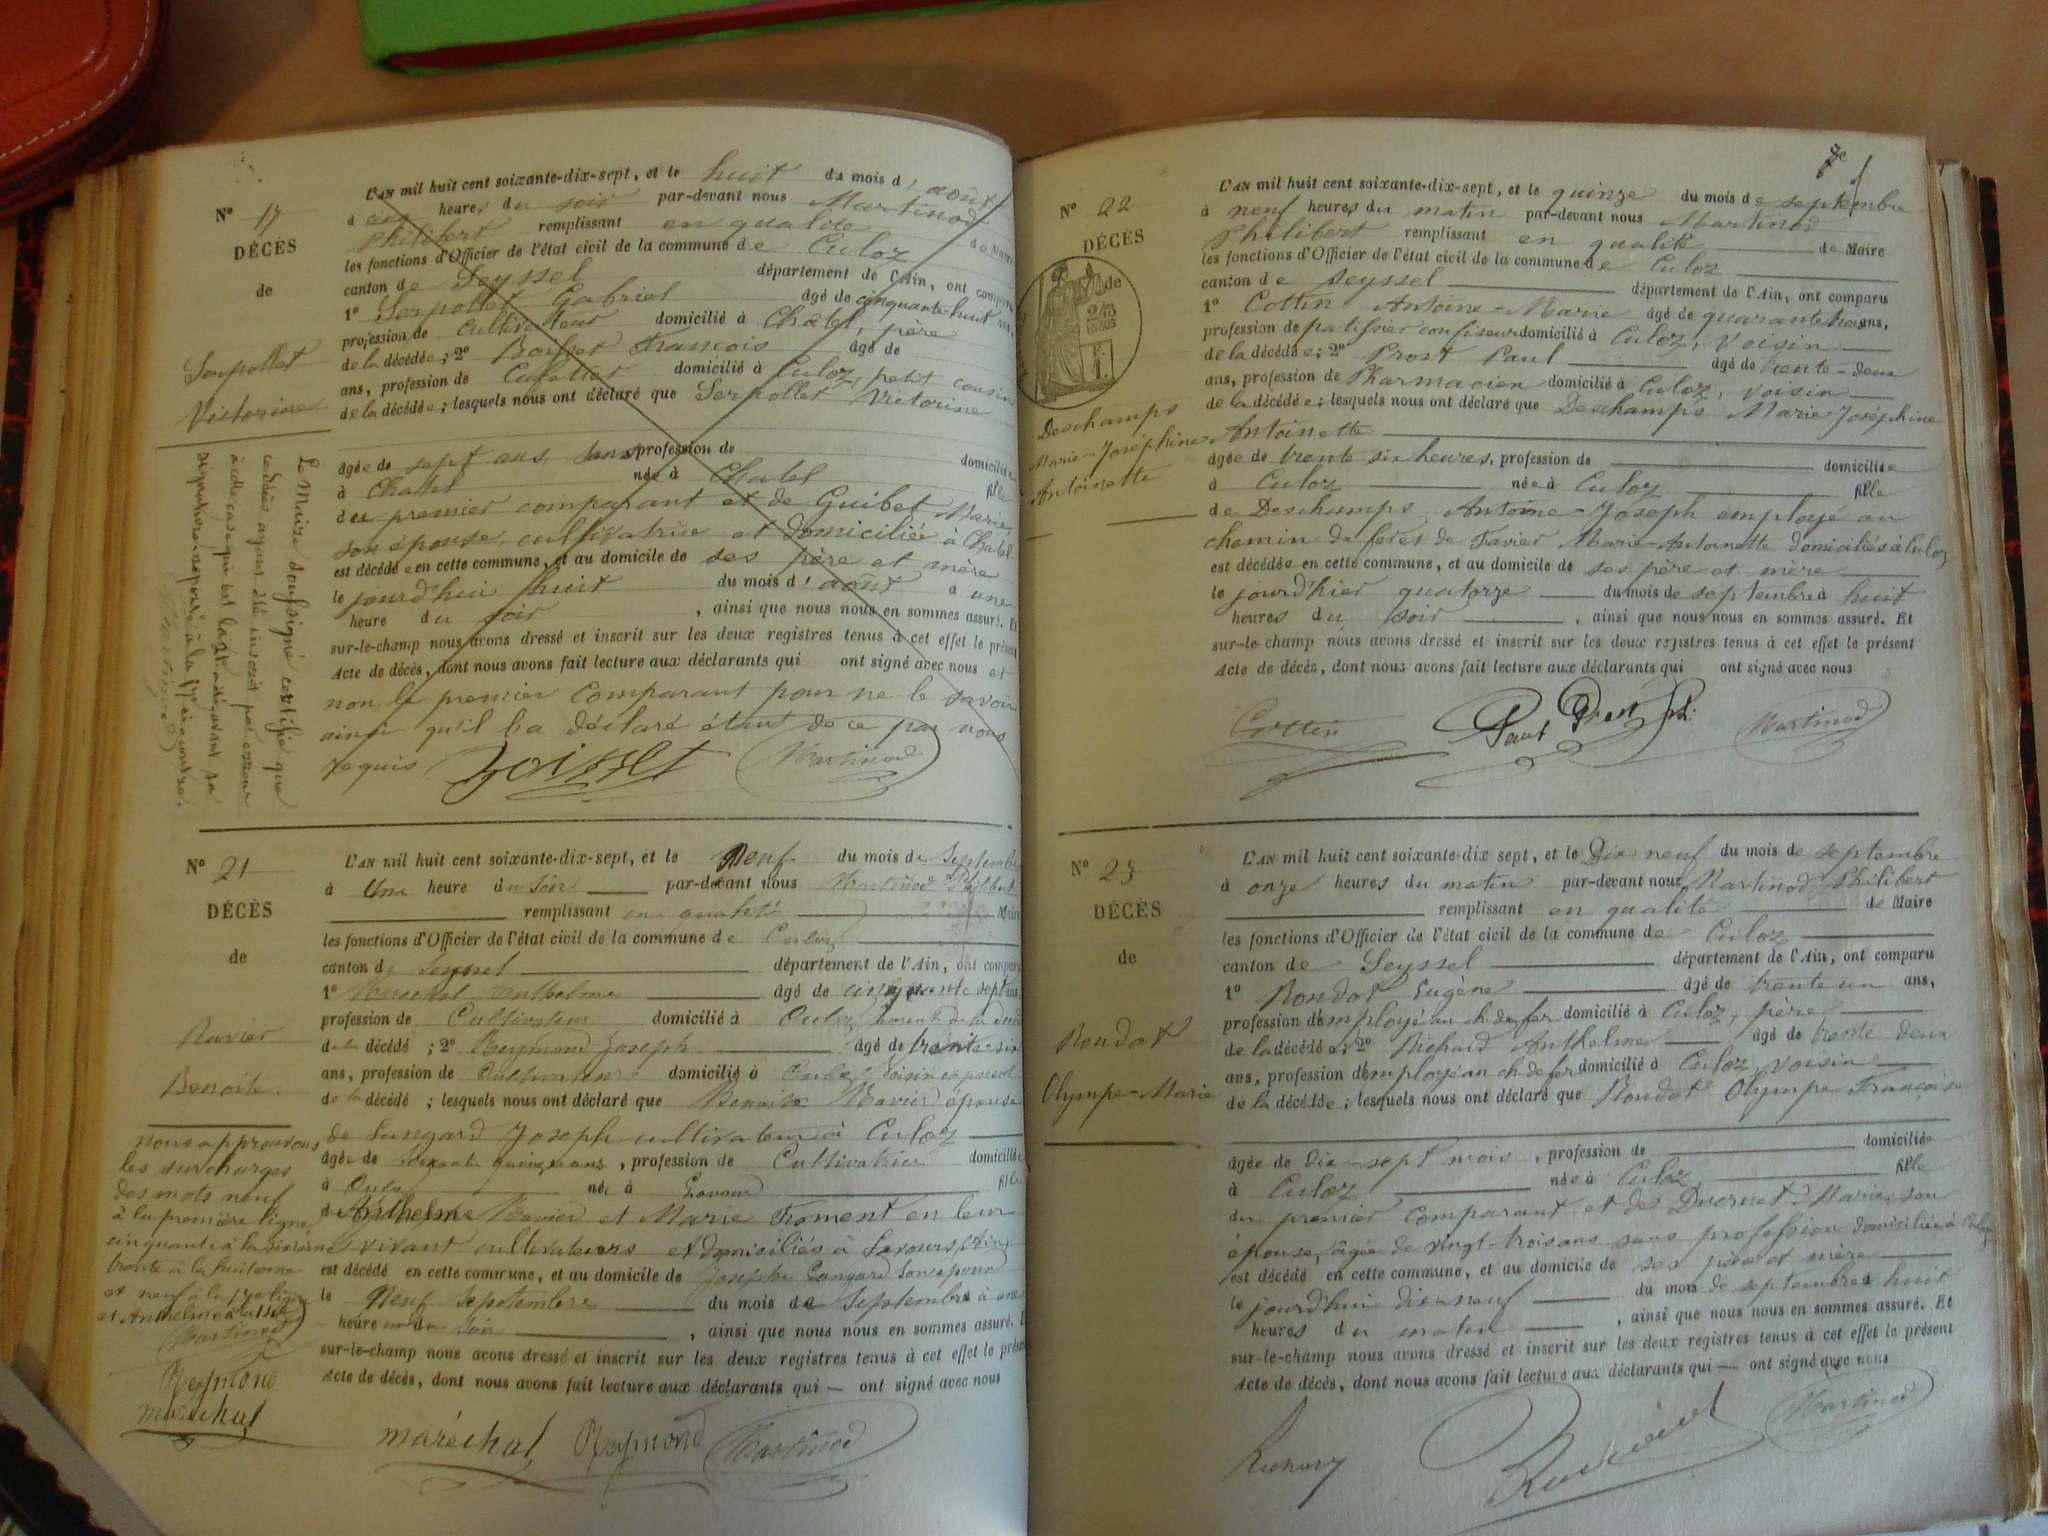 N° 17
DÉCÈS
de
Serpollet
Victorine
L'AN mil huit cent soixante-dix-sept, et le huit du mois d'août
à cinq heures du soir par-devant nous Martinod
Philibert remplissant en qualité de Maire
les fonctions d'Officier de l'état civil de la commune de Culoz
canton de Seyssel département de l'Ain, ont comparu
1° Serpollet Gabriel âgé de cinquante-huit ans,
profession de cultivateur domicilié à Châtel, père
de la décédée; 2° François âgé de
ans, profession de domicilié à Culoz, petit cousin
de la décédée; lesquels nous ont déclaré que Serpollet Victorine
âgée de sept ans, sans profession de domiciliée
à Chatel née à Chatel fille
du premier comparant et de Guibet Marie,
son épouse, cultivatrice et domiciliée à Châtel
est décédée en cette commune, et au domicile de ses père et mère
le jourd'hui huit du mois d'août à une
heure du soir, ainsi que nous nous en sommes assuré. Et
sur-le-champ nous avons dressé et inscrit sur les deux registres tenus à cet effet le présent
Acte de décès, dont nous avons fait lecture aux déclarants qui ont signé avec nous et
non le premier comparant pour ne le savoir
ainsi qu'il l'a déclaré étant de ce par nous
requis Martinod
Le Maire soussigné certifie que
ce décès ayant été inscrit par erreur
à cette case qui est la
signature
Martinod
N° 21
DÉCÈS
de
Ravier
Benoite.
L'AN mil huit cent soixante-dix-sept, et le Neuf du mois de Septembre
à Une heure du soir par-devant nous Martinod Philibert
remplissant en qualité Maire
les fonctions d'Officier de l'état civil de la commune de Culoz
canton de Seyssel département de l'Ain, ont comparu
1° Maréchal Anthelme âgé de cinquante sept ans,
profession de Cultivateur domicilié à Culoz parent de la
de la décédé ; 2° Reymond Joseph âgé de trente-six
ans, profession de Cultivateur domicilié à Culoz Voisin et parent
de la décédé ; lesquels nous ont déclaré que Benoite Ravier épouse
de Joseph cultivateur à Culoz
âgée de soixante quinze ans, profession de Cultivatrice domiciliée
à Culoz née à fille
d'Anthelme Ravier et Marie Froment en leur
vivant cultivateurs et domiciliés à Lavours (Ain)
est décédé en cette commune, et au domicile de Joseph son époux
le Neuf septembre du mois de Septembre à une
heure du Soir, ainsi que nous nous en sommes assuré. Et
sur-le-champ nous avons dressé et inscrit sur les deux registres tenus à cet effet le présent
Acte de décès, dont nous avons fait lecture aux déclarants qui — ont signé avec nous
maréchal Reymond Martinod
nous approuvons
les surcharges
des mots neuf
à la première ligne
cinquante à la sixième
trente à la huitième
et neuf à la ligne
et Anthelme
Martinod
Reymond
maréchal
7e
N° 22
DÉCÈS
de
2/10
EN SUS
Deschamps
Marie-Joséphine
Antoinette
L'AN mil huit cent soixante-dix-sept, et le quinze du mois de septembre
à neuf heures du matin par-devant nous Martinod
Philibert remplissant en qualité de Maire
les fonctions d'Officier de l'état civil de la commune de Culoz
canton de Seyssel département de l'Ain, ont comparu
1° Cottin Antoine-Marie âgé de quarante trois ans,
profession de patissier confiseur domicilié à Culoz, voisin
de la décédée; 2° Prost Paul âgé de trente-deux
ans, profession de Pharmacien domicilié à Culoz, voisin
de la décédée; lesquels nous ont déclaré que Deschamps Marie-Joséphine
Antoinette
âgée de trente six heures, profession de domiciliée
à Culoz née à Culoz fille
de Deschamps Antoine-Joseph employé au
chemin de fer et de Favier Marie-Antoinette domiciliés à Culoz
est décédée en cette commune, et au domicile de ses père et mère
le jourd'hier quatorze du mois de septembre à huit
heures du soir, ainsi que nous nous en sommes assuré. Et
sur-le-champ nous avons dressé et inscrit sur les deux registres tenus à cet effet le présent
Acte de décès, dont nous avons fait lecture aux déclarants qui ont signé avec nous
Cottin Paul Prost Martinod
N° 23
DÉCÈS
de
Rondot
Olympe-Marie
L'AN mil huit cent soixante-dix sept, et le Dix neuf du mois de septembre
à onze heures du matin par-devant nous Martinod Philibert
remplissant en qualité de Maire
les fonctions d'Officier de l'état civil de la commune de Culoz
canton de Seyssel département de l'Ain, ont comparu
1° Rondot Eugène âgé de trente un ans,
profession d'employé au ch. de fer domicilié à Culoz, père
de la décédée; 2° Richard Anthelme âgé de trente deux
ans, profession d'employé au ch. de fer domicilié à Culoz, voisin
de la décédée; lesquels nous ont déclaré que Rondot Olympe Françoise
âgée de dix-sept mois, profession de domiciliée
à Culoz née à Culoz fille
du premier comparant et de Ducruet Marie, son
épouse, âgée de vingt-trois ans sans profession domiciliée à Culoz
est décédé en cette commune, et au domicile de ses père et mère
le jourd'hui dix-neuf du mois de septembre à huit
heures du matin, ainsi que nous nous en sommes assuré. Et
sur-le-champ nous avons dressé et inscrit sur les deux registres tenus à cet effet le présent
Acte de décès, dont nous avons fait lecture aux déclarants qui — ont signé avec nous
Martinod